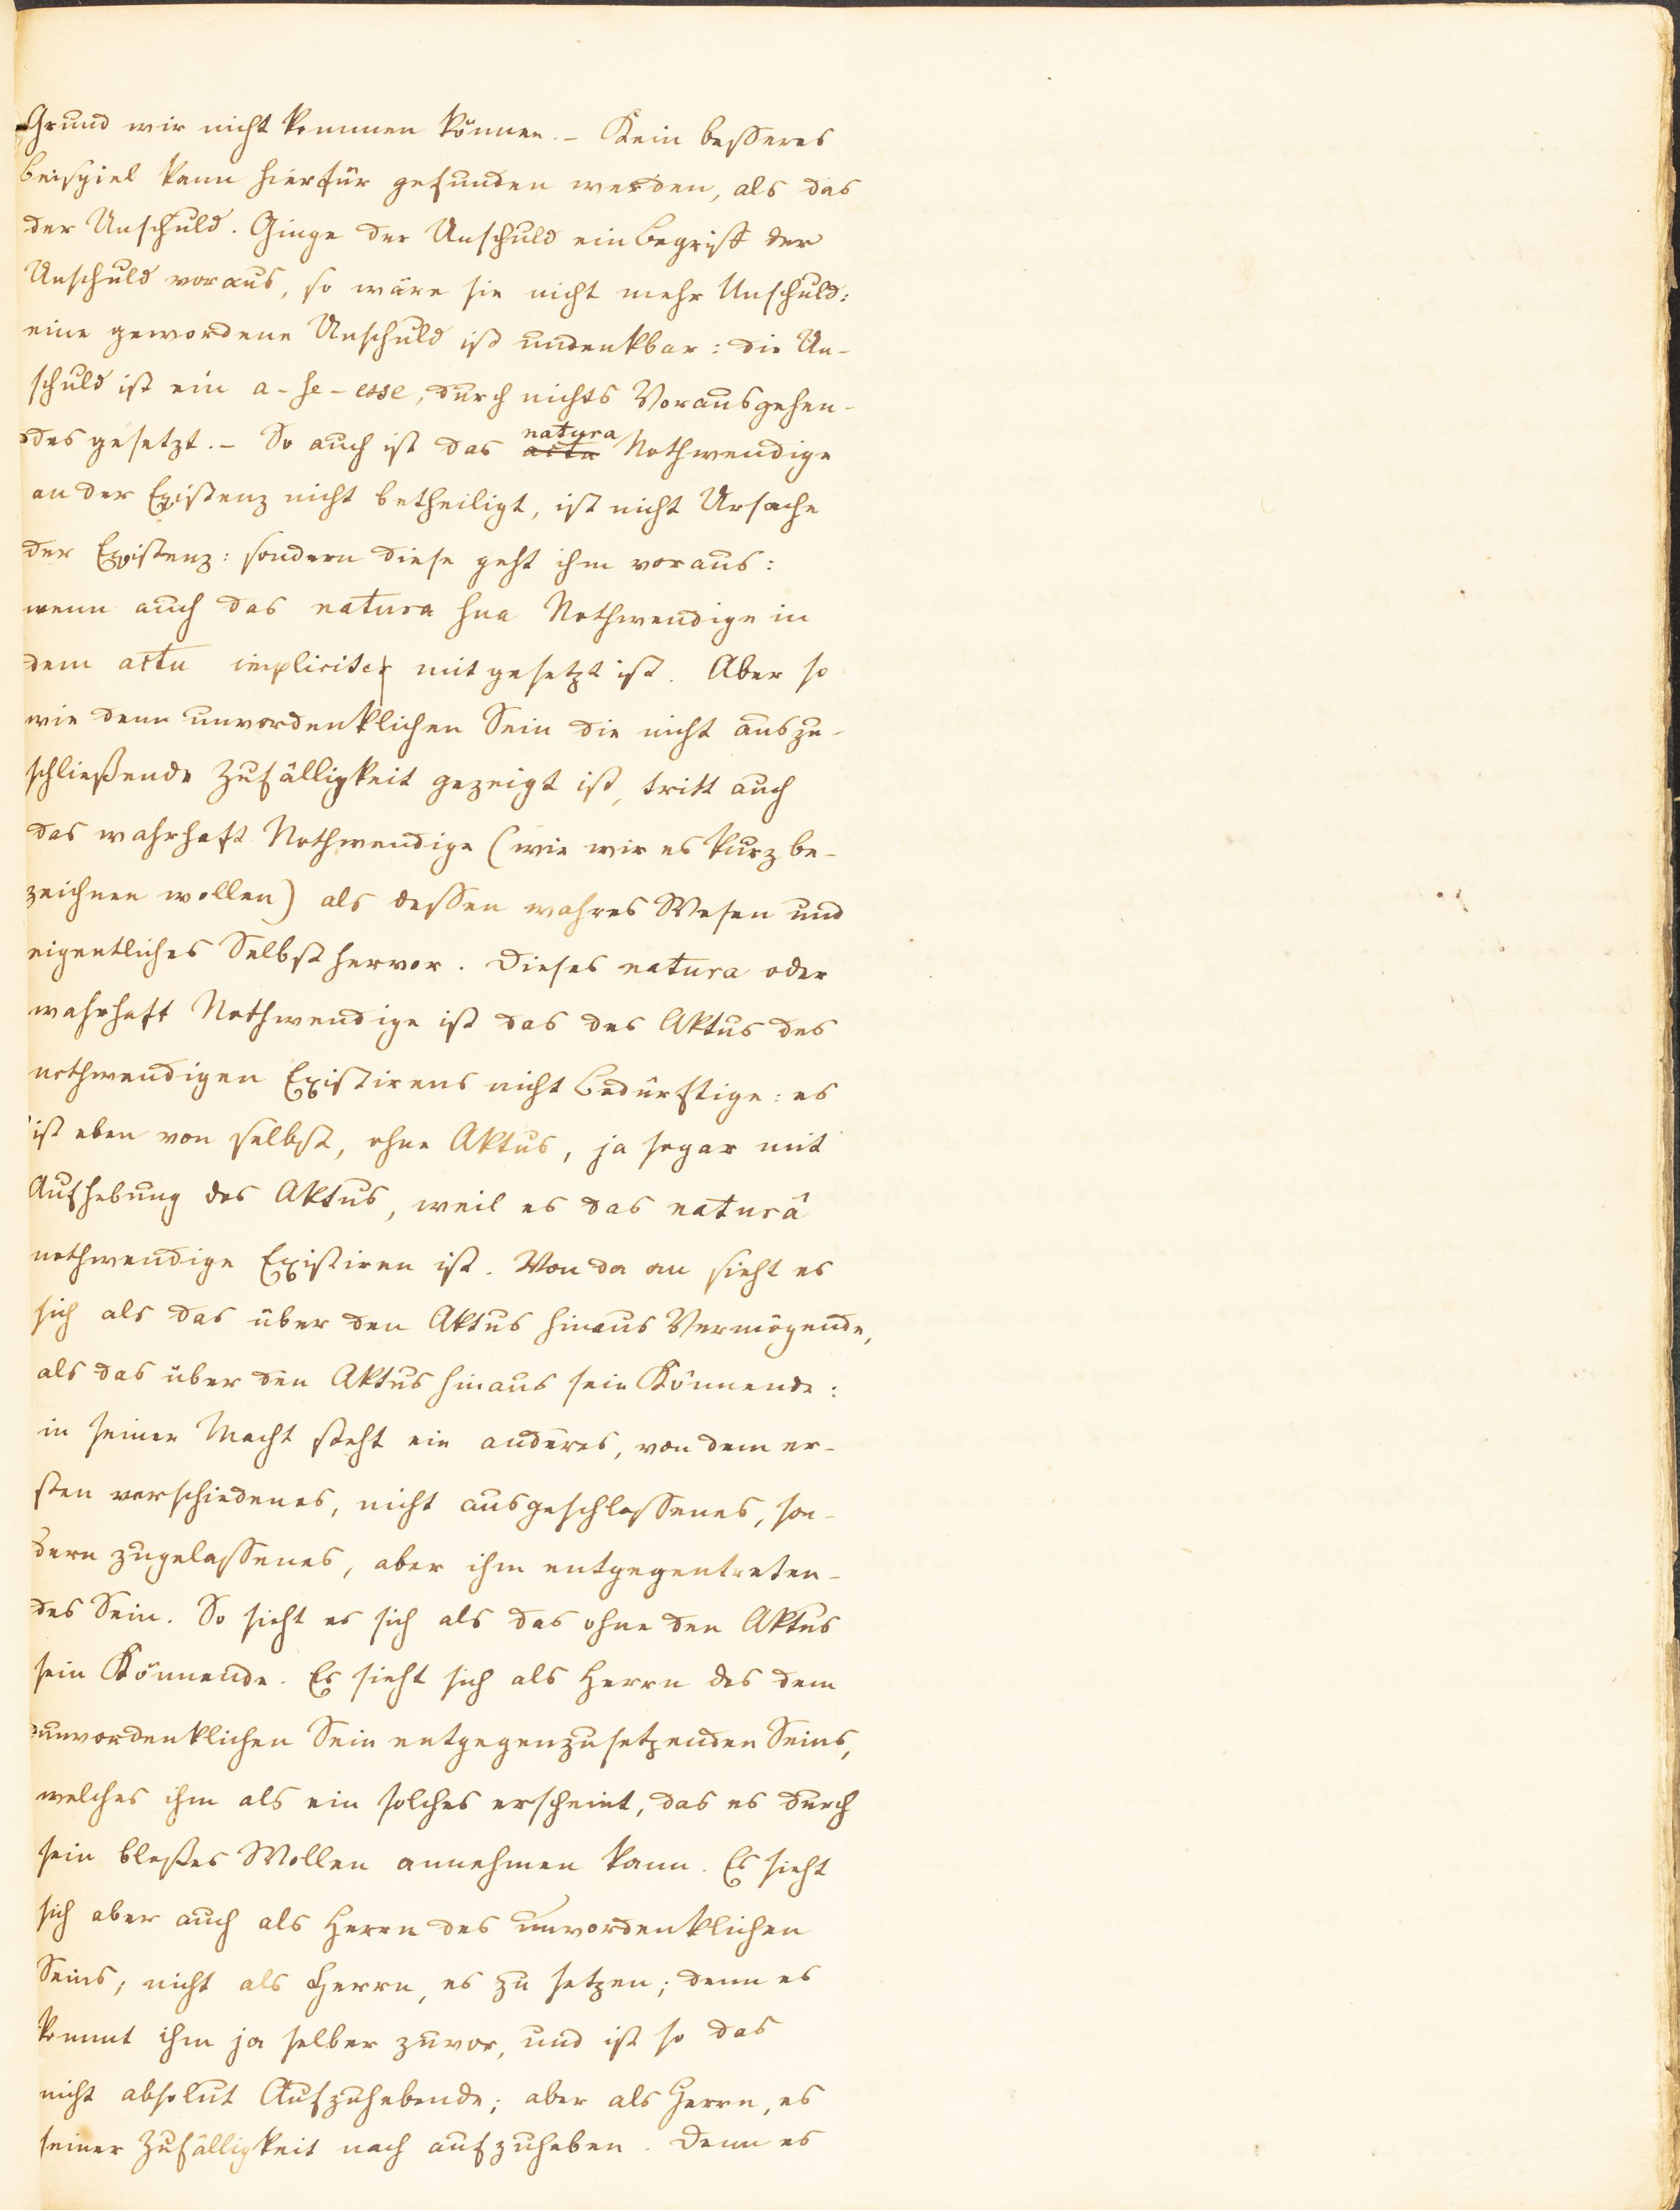 Grund wir nicht kommen können. – Kein besseres
Beispiel kann hierfür gefunden werden, als das
der Unschuld. Ginge der Unschuld ein Begriff der
Unschuld voraus, so wäre sie nicht mehr Unschuld:
eine gewordene Unschuld ist undenkbar: die Un-
schuld ist ein a-se-esse, durch nichts Vorausgehen-
des gesetzt. – So auch ist das natura actu Nothwendige
an der Existenz nicht betheiligt, ist nicht Ursache
der Existenz: sondern diese geht ihm voraus:
wenn auch das natura sua Nothwendige in
dem actu impliciter mit gesetzt ist. Aber so
wie dem unvordenklichen Sein die nicht auszu-
schließende Zufälligkeit gezeigt ist, tritt auch
das wahrhaft Nothwendige (wie wir es kurz be-
zeichnen wollen) als dessen wahres Wesen und
eigentliches Selbst hervor. Dieses natura oder
wahrhaft Nothwendige ist das des Aktus des
nothwendigen Existirens nicht Bedürftige: es
ist eben von selbst, ohne Aktus, ja sogar mit
Aufhebung des Aktus, weil es das naturâ
nothwendige Existiren ist. Von da an sieht es
sich als das über den Aktus hinaus Vermögende,
als das über den Aktus hinaus sein Könnende:
in seiner Macht steht ein anderes, von dem er-
sten verschiedenes, nicht ausgeschlossenes, son-
dern zugelassenes, aber ihm entgegentreten-
des Sein. So sieht es sich als das ohne den Aktus
sein Könnende. Es sieht sich als Herrn des dem
unvordenklichen Sein entgegenzusetzenden Seins,
welches ihm als ein solches erscheint, das es durch
sein bloßes Wollen annehmen kann. Es sieht
sich aber auch als Herrn des unvordenklichen
Seins, nicht als Herrn, es zu setzen; denn es
kommt ihm ja selber zuvor, und ist so das
nicht absolut Aufzuhebende; aber als Herrn, es
seiner Zufälligkeit nach aufzuheben. Denn es